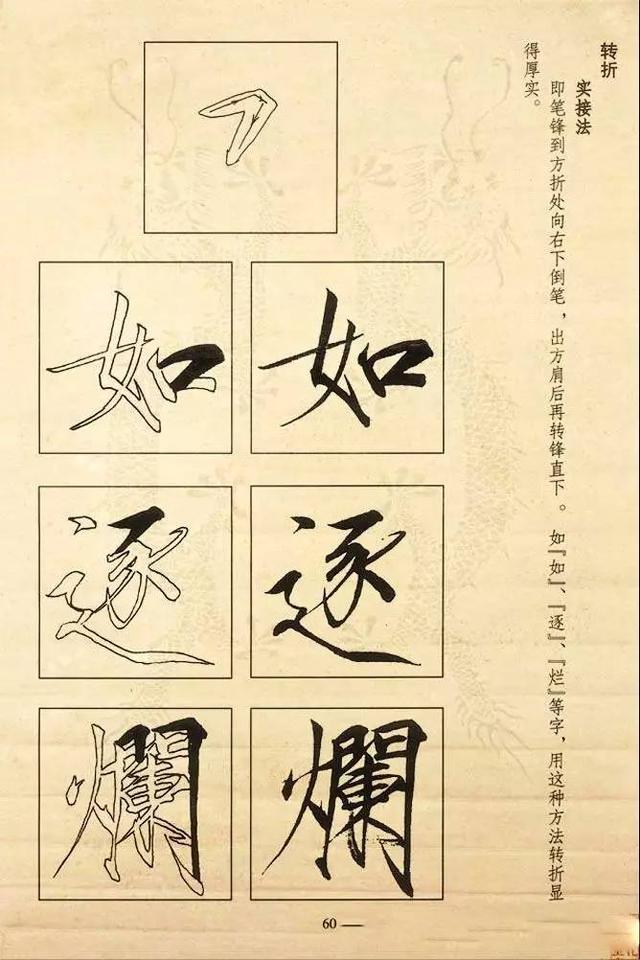 转折
实接法
即笔锋到方折处向右下倒笔，出方肩后再转锋直下。如『如』、『逐』、『烂』等字，用这种方法转折显
得厚实。
如 如
逐 逐
爛 爛
60